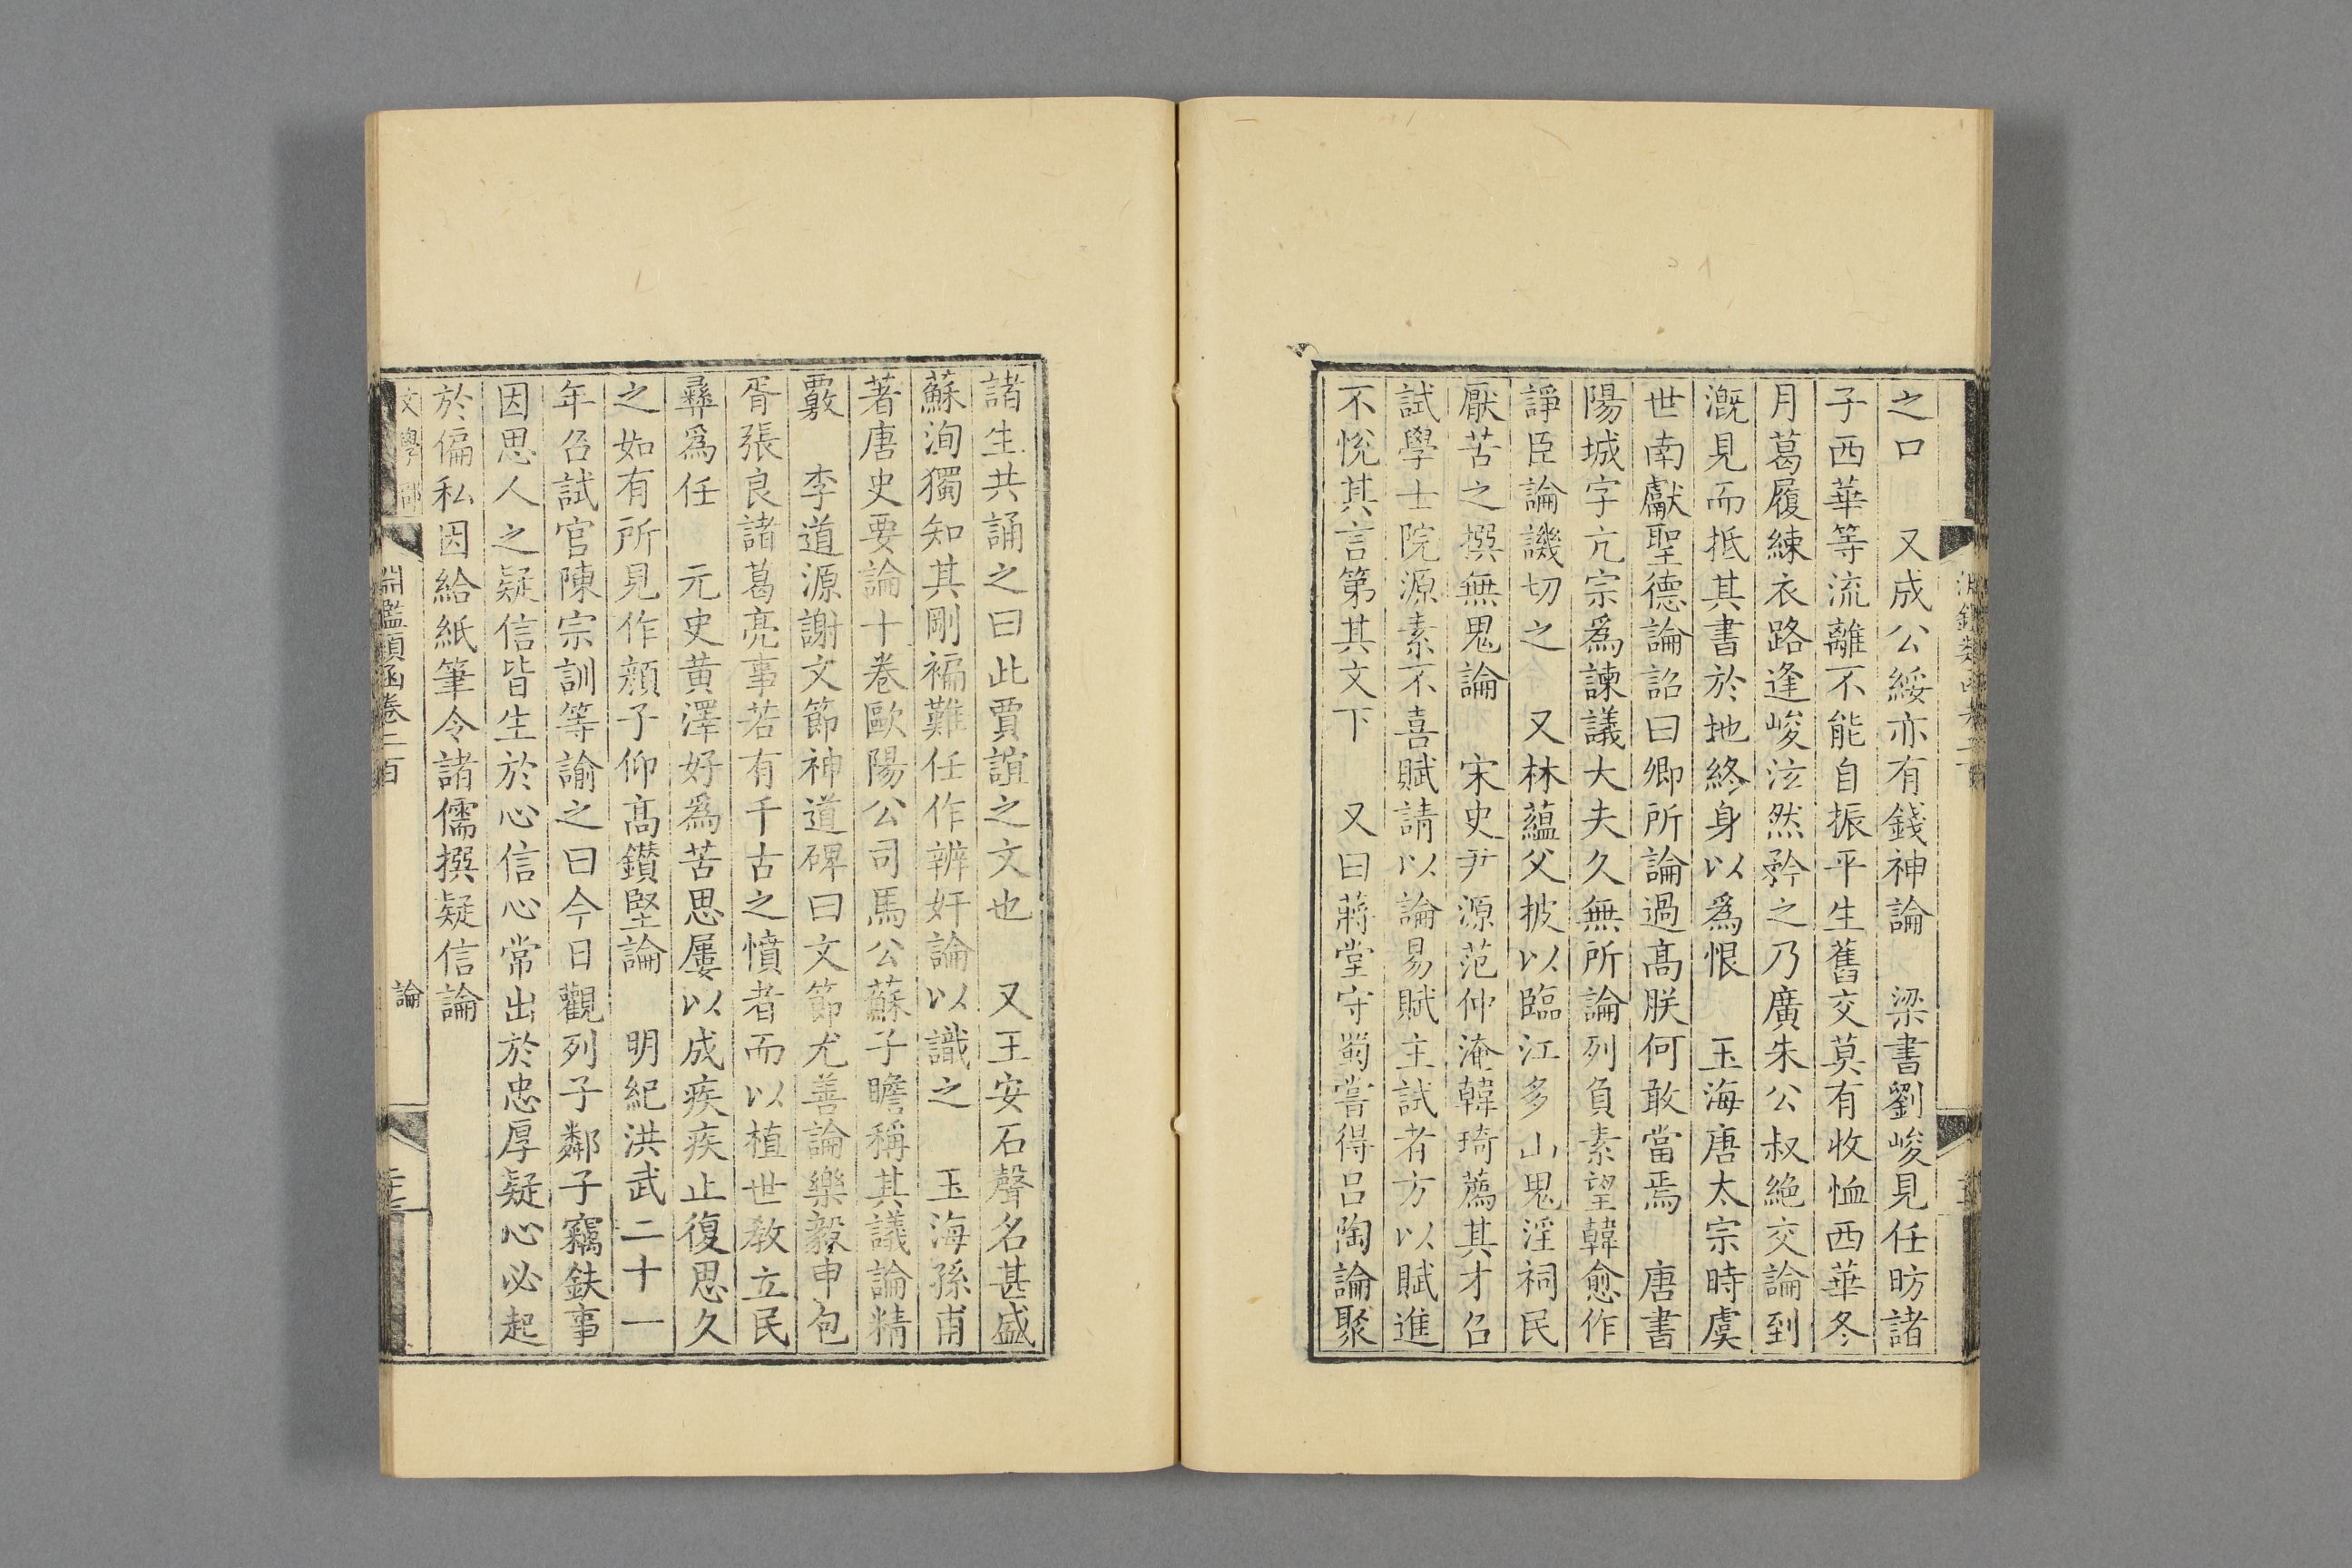 之口　又成公綏亦有錢神論　梁書劉峻見任昉諸
子西華等流離不能自振平生舊交莫有收恤西華冬
月葛履練衣路逢峻泫然矜之乃廣朱公叔絶交論到
溉見而抵其書於地終身以爲恨　玉海唐太宗時虞
世南獻聖德論詔曰卿所論過高朕何敢當焉　唐書
陽城字亢宗爲諫議大夫久無所論列負素望韓愈作
諍臣論譏切之　又林蘊父披以臨江多山鬼淫祠民
厭苦之撰無鬼論　宋史尹源范仲淹韓琦薦其才召
試學士院源素不喜賦請以論易賦主試者方以賦進
不悅其言第其文下　又曰蔣堂守蜀嘗得呂陶論聚
諸生共誦之曰此賈誼之文也　又王安石聲名甚盛
蘇洵獨知其剛褊難任作辨奸論以識之　玉海孫甫
著唐史要論十卷歐陽公司馬公蘇子瞻稱其議論精
覈　李道源謝文節神道碑曰文節尤善論樂毅申包
胥張良諸葛亮事若有千古之憤者而以植世教立民
彝爲任　元史黃澤好爲苦思屢以成疾疾止復思久
之如有所見作顏子仰高鑽堅論　明紀洪武二十一
年召試官陳宗訓等諭之曰今日觀列子鄰子竊鈇事
因思人之疑信皆生於心信心常出於忠厚疑心必起
於偏私因給紙筆令諸儒撰疑信論
文學部　淵鑑類函卷二百　論